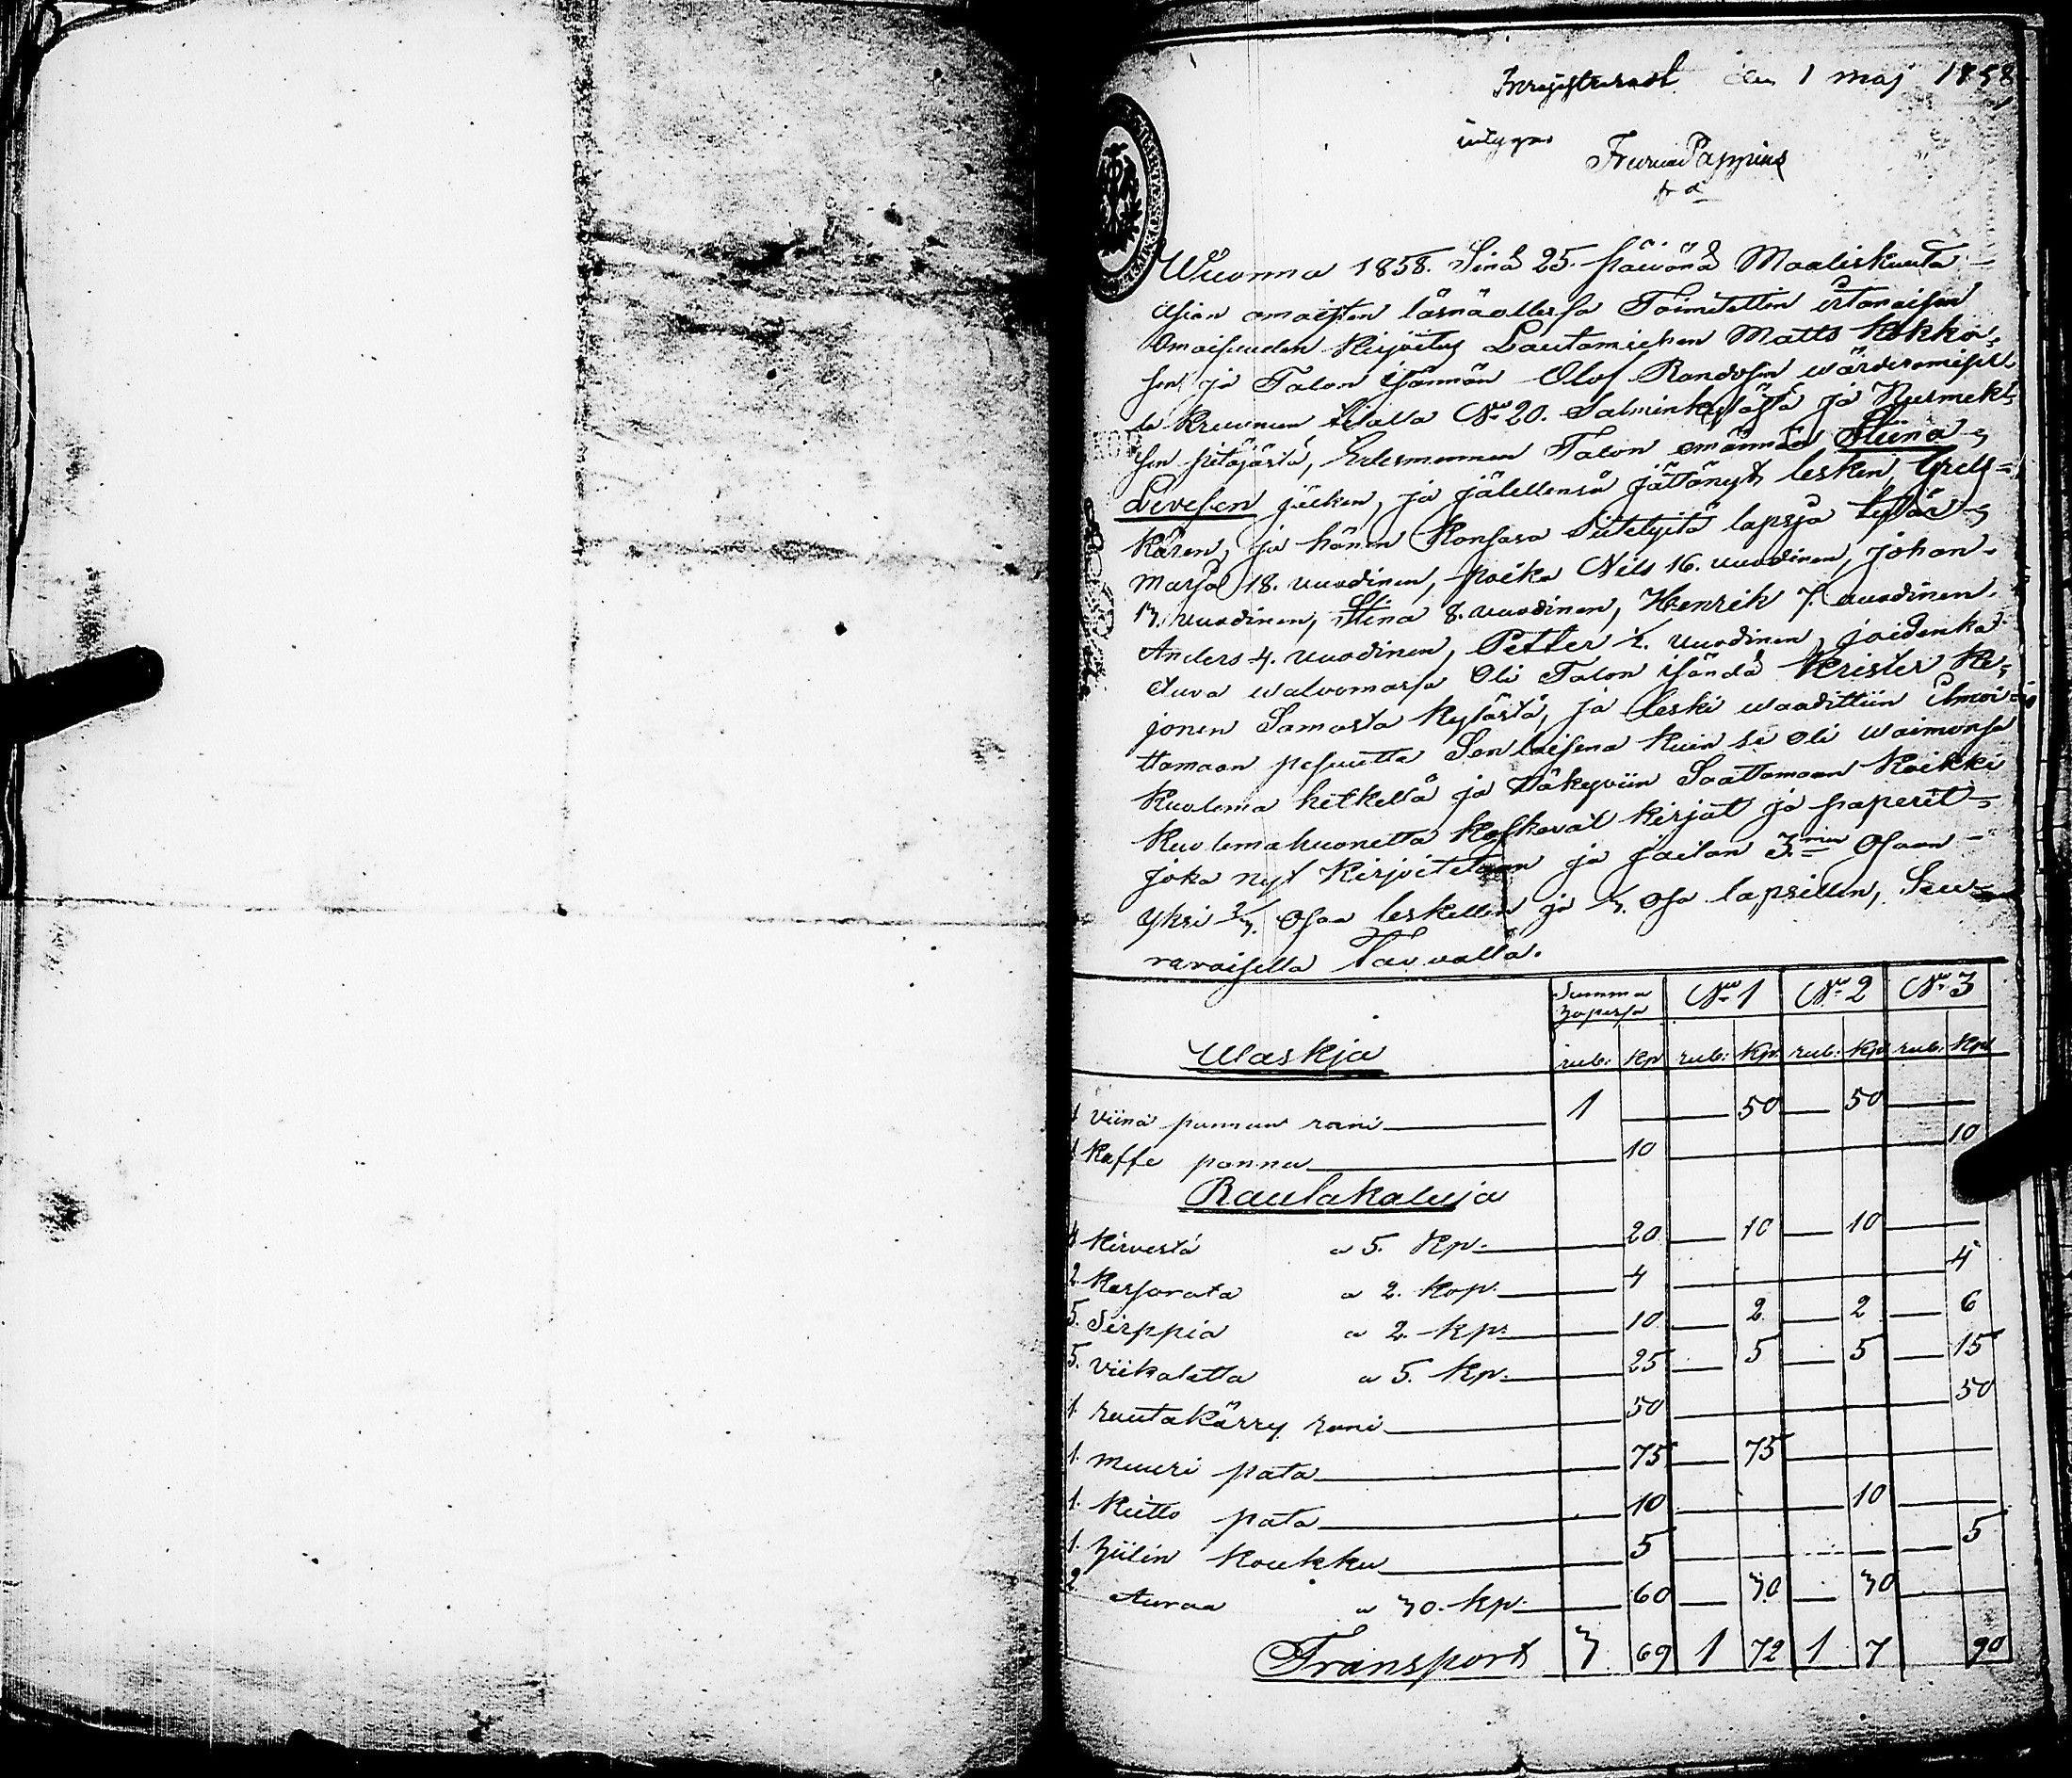 den 1 maj 1858
intygar
Wuonna 1858. Sinä 25. päiwänä Maaliskuuta
Asian omaisten läsnäollessa Toimitettin irtanaisen
Omaisuuden Kirjoitus Lautamiehen Matts Kokko-
sen ja Talon isännän Olof Rondosen wärderamisel-
la Kruunun tilalla No 20. Salminkylässä ja Nurmek-
sen pitäjästä, Talon emännän Stiina
Levesen jälken, ja jälellensä jättänyt lesken,
Käsen, ja hänen Kansasa Siitetyitä lapsja tytär
Marja 18. vuodinen, poika Nils 16. vuodinen, Johan
13. vuodinen, Stina 8. vuodinen, Henrik 7. vuodinen.
Anders 4. vuodinen, Petter 1/2. vuodinen, joidenka
etuva walvomassa Oli Talon isändä Krister Ki-
jonen Samasta Kylästä, ja leski waadittiin ilmoi-
ttamaan pesuutta Sen laisena kuin se oli waimonsa
Kuolema hetkellä ja Näkyviin Saattamaan Kaikki
Kuolemahuonetta Koskevat kirjat ja paperit
joka nyt Kirjoitetaan ja jaetan 3:men Osaan
yksi 2/3 Osaa leskellen ja 1/3. Osa lapsillen, Seu-
ravaisella Tavvalla.
Summa Hopessa No 1 No 2 No 3
Waskja rub: Kp rub: Kp. rub: Kp rub: Kp
1 Viina pannun rani 1 50 50
1 Kaffe panna 10 10
Rautakaluja
4 Kirvestä a 5. Kp. 20 10 10
2. Kassarata a 2. Kop. 4 4
5. Sirppiä a 2. kp. 10 2 2 6
5. Viikatetta a 5. Kp. 25 5 5 15
1. rautakärry rani 50 50
1. muuri pata 75 75
1. Keitto pata 10 10
1. hiilin Koukku 5 5
2 Auraa a 30. Kp. 60 30 30
Transport 3 69 1 72 1 7 90